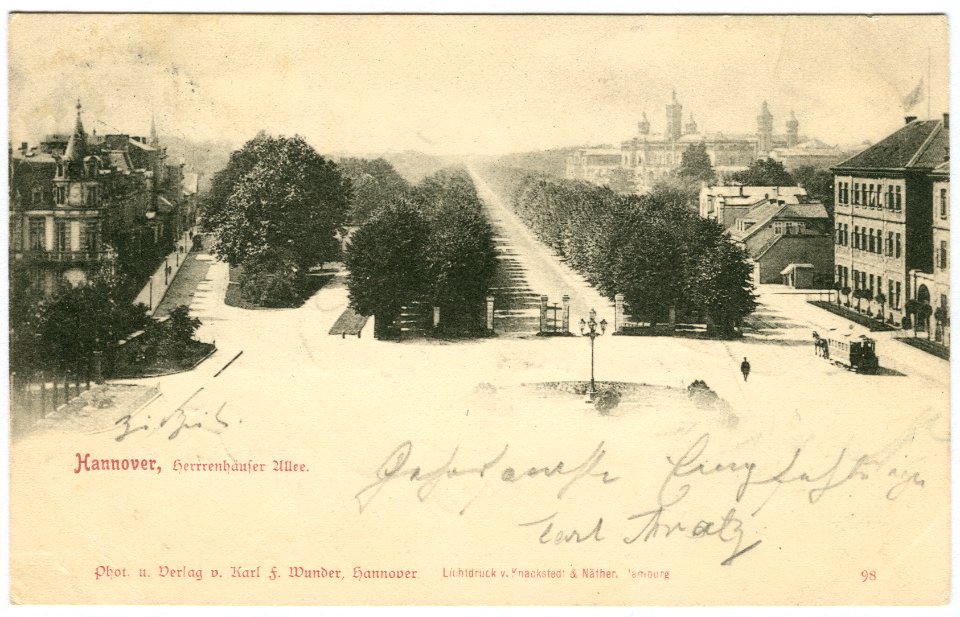 Hannover, Herrrenhäuser Allee.
Carl Thratz
Phot. u. Verlag v. Karl F. Wunder, Hannover Lichtdruck v. Knackstedt & Näther. Hamburg 98